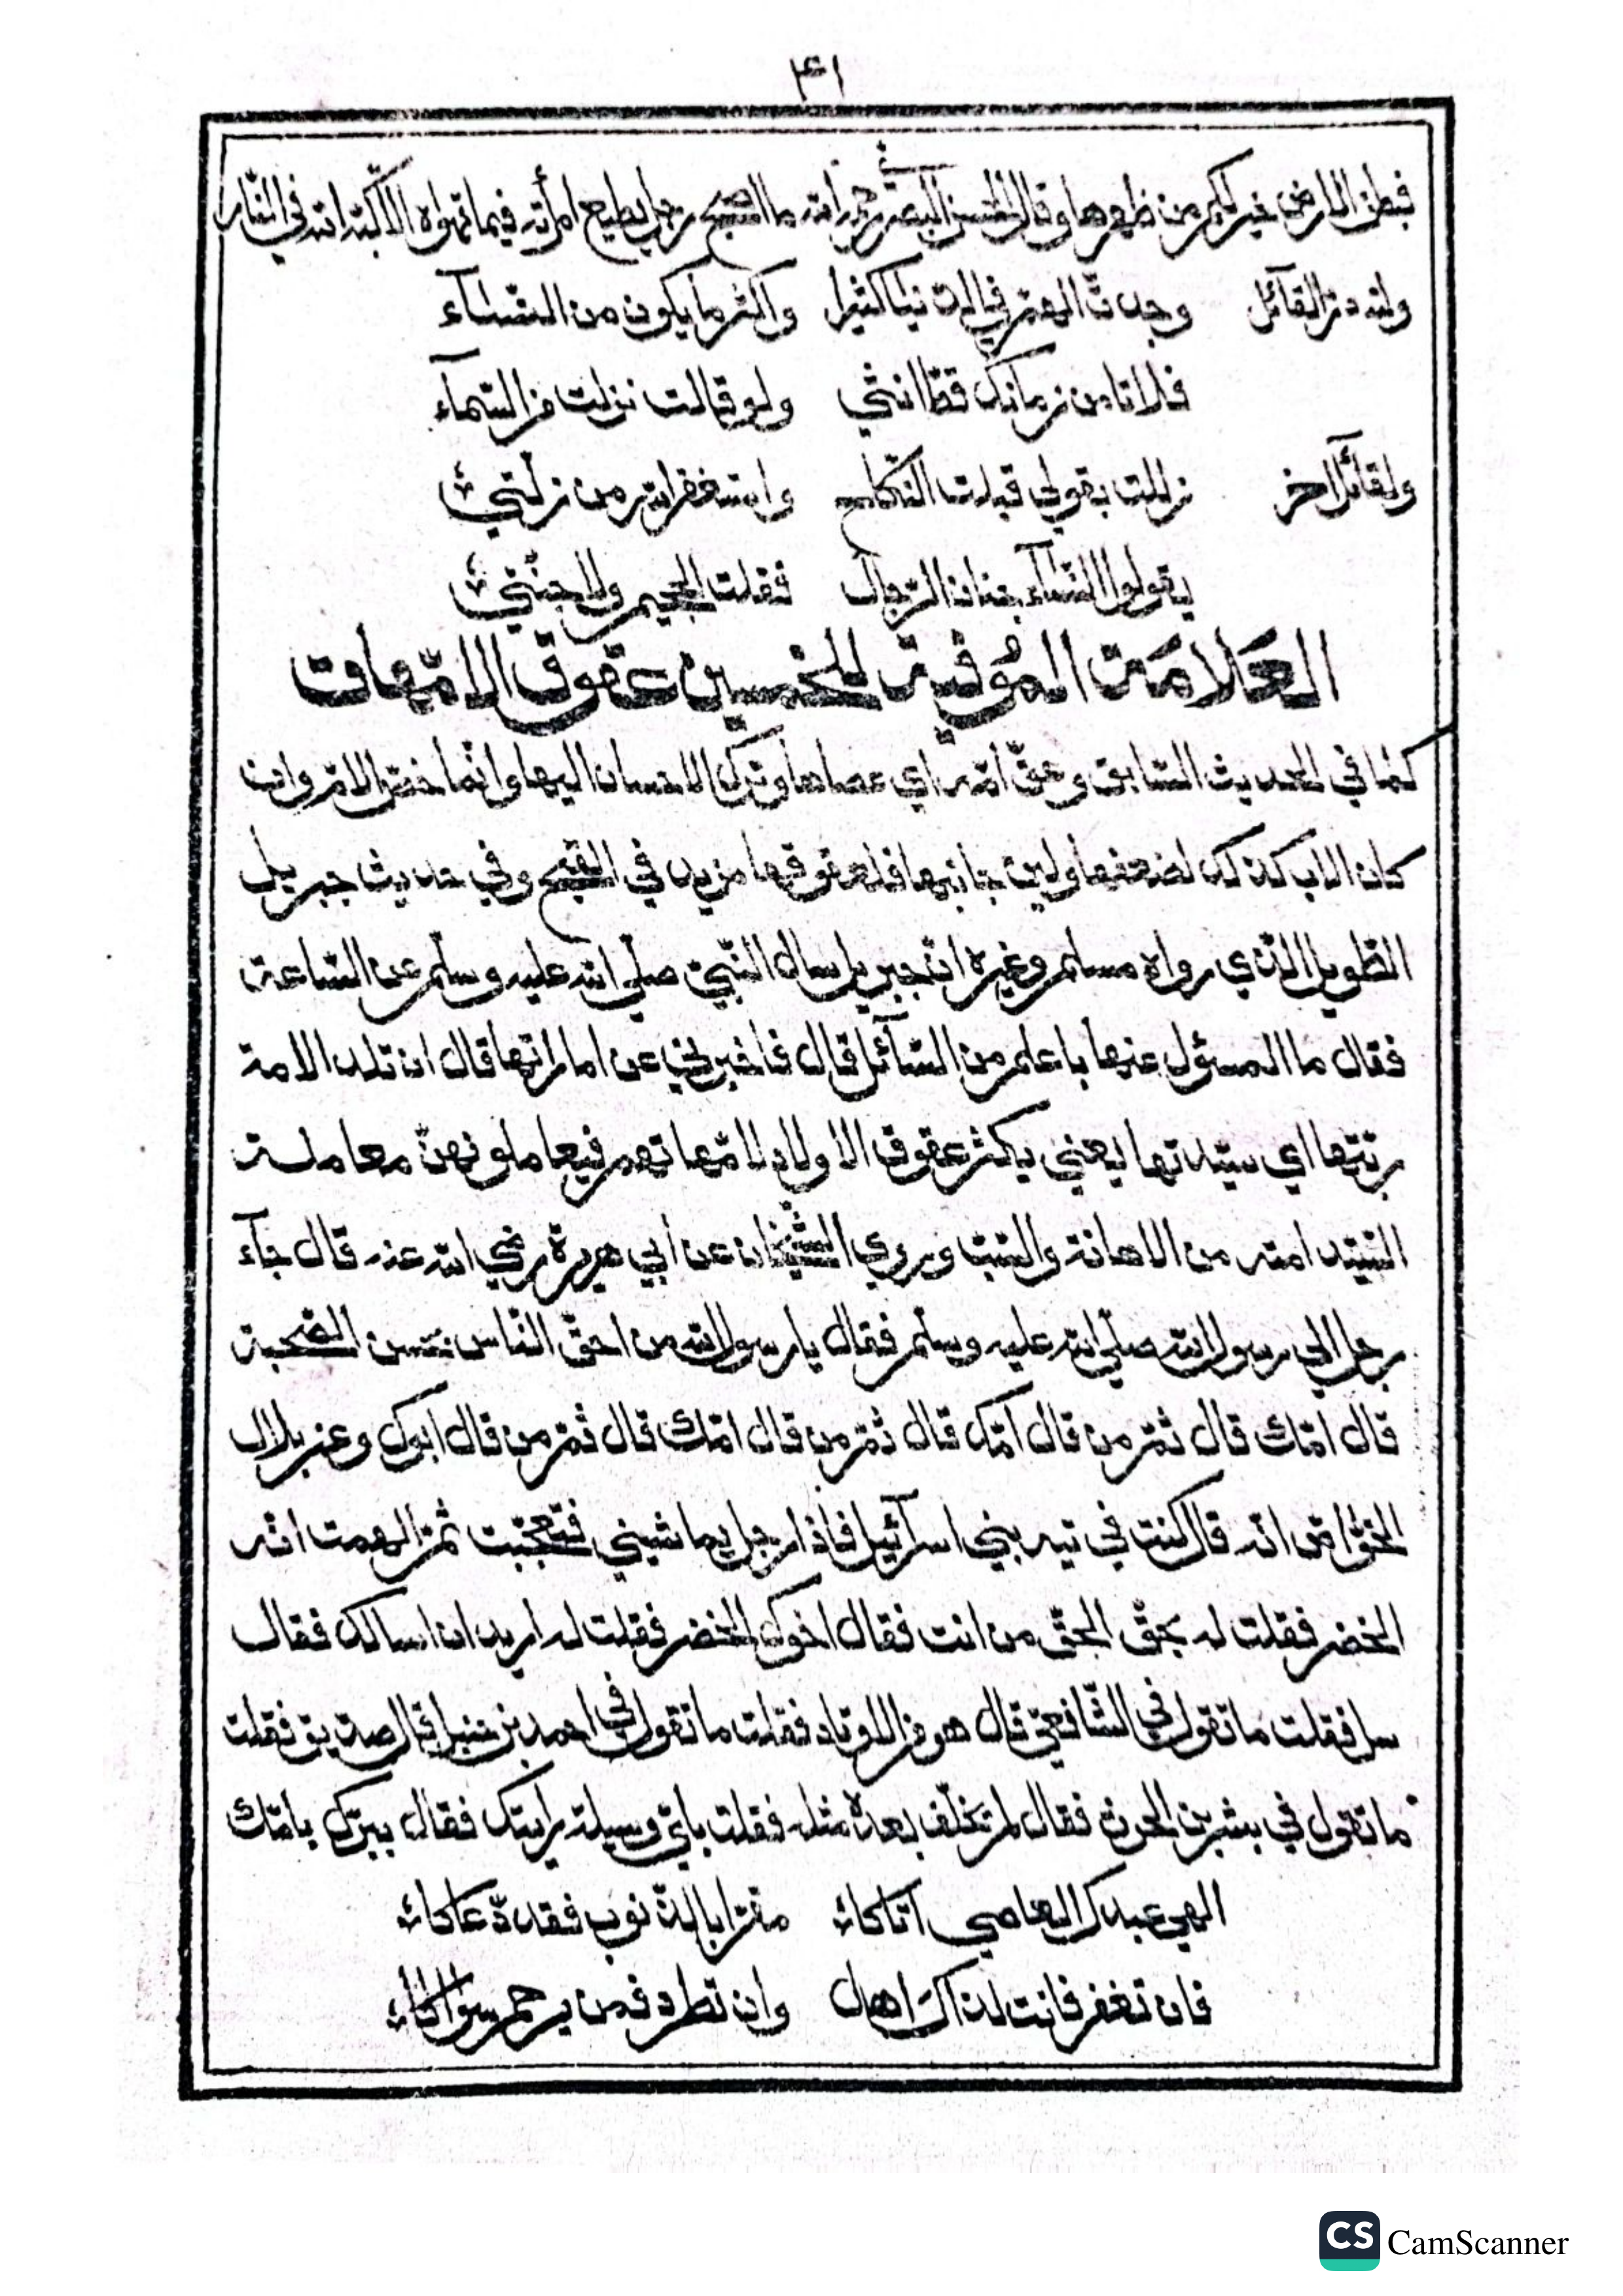 ٤١
فبطن الارض خير لكم من ظهرها وقال الحسن البصري رحمه الله ما اصبح رجل يطيع امرأته فيما تهواه الا اكبه الله في النار
ولله در القائل وجدت الهم في الدنيا كثيرا واكثر ما يكون من النسآء
فلا تامن زمانك قط انثى ولو قالت نزلت من السمآء
ولقائل اخر زللت بقولي قبلت النكاح واستغفر الله من زلتي
يقولوا النسآء جنان الرجال فقلت الجحيم ولا جنتي
العلامة الموفية للخمسين عقوق الامهات
كما في الحديث السابق وعق امه اي عصاها وترك الاحسان اليها وانما خص الام وان
كان الاب كذلك لضعفها ولين جانبها فلعقوقها مزيد في القبح وفي حديث جبريل
الطويل الذي رواه مسلم وغيره ان جبريل سال النبي صلى الله عليه وسلم عن الساعة
فقال ما المسئول عنها باعلم من السآئل قال فاخبرني عن اماراتها قال ان تلد الامة
ربتها اي سيدتها يعني يكثر عقوق الاولاد لامهاتهم فيعاملونهن معاملة
السيد امته من الاهانة والسب وروي الشيخان عن أبي هريرة رضي الله عنه قال جآء
رجل الي رسول الله صلى الله عليه وسلم فقال يا رسول الله من احق الناس بحسن الصحبة
قال امك قال ثم من قال امك قال ثم من قال امك قال ثم من قال ابوك وعن بلال
الخواص انه قال كنت في تيه بني اسرآئيل فاذا رجل يماشيني فتعجبت ثم الهمت انه
الخضر فقلت له بحق الحق من انت فقال اخوك الخضر فقلت له اريد ان اسالك فقال
سل فقلت ما تقول في الشافعي قال هو من الاوتاد فقلت ما تقول في احمد بن حنبل قال صديق فقلت
ما تقول في بشر بن الحرث فقال لم يخلف بعده مثله فقلت باي وسيلة رايتك فقال ببرك بامك
الهي عبدك العاصي اتاكا مقرا بالذنوب فقد دعاكا
فان تغفر فانت لذاك اهل وان تطرد فمن يرحم سواكا
CS CamScanner